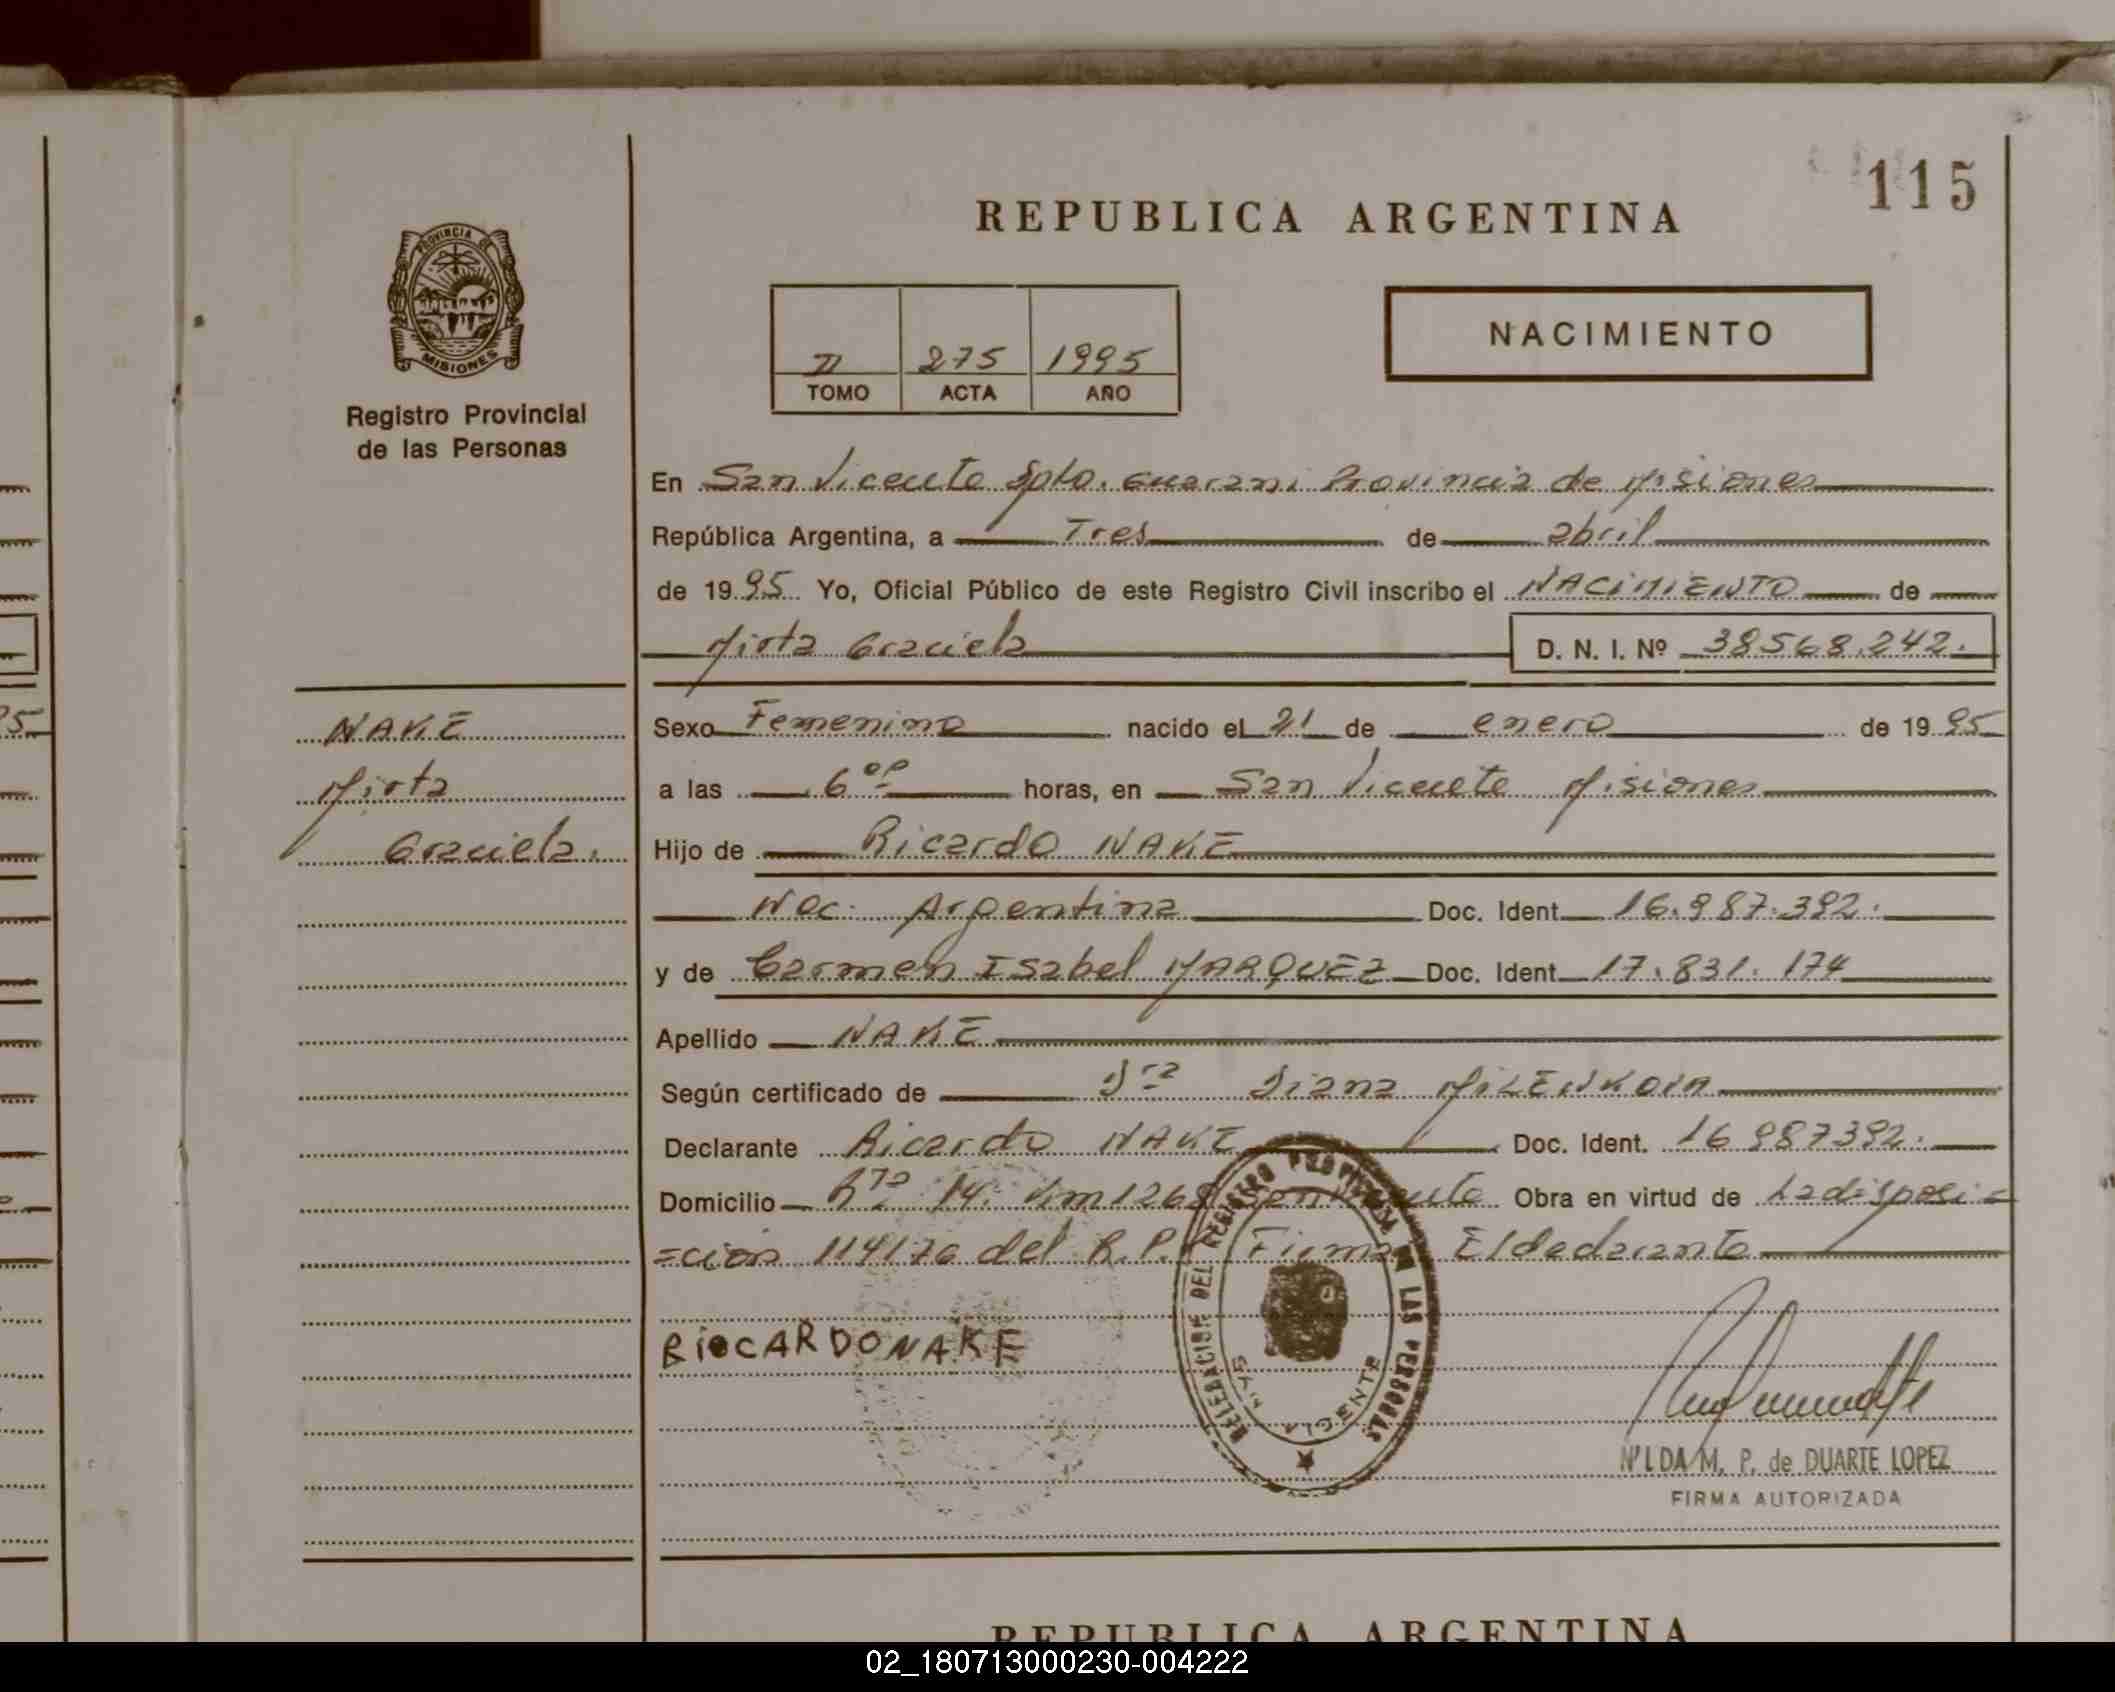 115
REPUBLICA ARGENTINA
PROVINCIA DE
MISIONES
Registro Provincial
de las Personas
II 275 1995
TOMO ACTA AÑO
NACIMIENTO
En San Vicente Dpto. Guarani Provincia de Misiones
República Argentina, a Tres de abril
de 1995 Yo, Oficial Público de este Registro Civil inscribo el NACIMIENTO de
Mirta Graciela D. N. I. Nº 38568.242.
NAKE
Mirta
Graciela.
Sexo Femenino nacido el 21 de enero de 1995
a las 6 horas, en San Vicente Misiones
Hijo de Ricardo NAKE
Nac. Argentina Doc. Ident. 16.987.392.
y de Carmen Isabel MARQUEZ Doc. Ident. 17.831.174
Apellido NAKE
Según certificado de Dra Diana MILENKOVA
Declarante Ricardo NAKE Doc. Ident. 16987392.
Domicilio Rta 14. Km 1268 San Vicente Obra en virtud de La disposi=
=ción 114176 del R.P.P. Firma El declarante
RICARDO NAKE
DELEGACION DEL REGISTRO PROVINCIAL DE LAS PERSONAS
SAN VICENTE
NILDA M. P. de DUARTE LOPEZ
FIRMA AUTORIZADA
REPUBLICA ARGENTINA
02_180713000230-004222